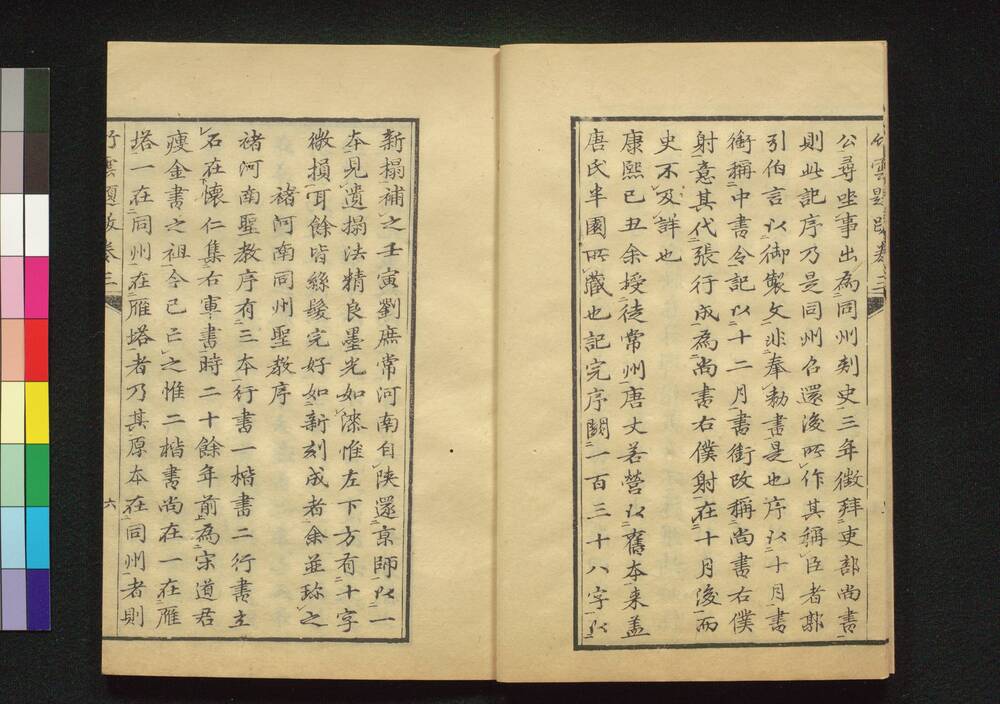 竹雲題跋卷三
公尋坐事出為同州刺史三年徵拜吏部尚書
則此記序乃是同州召還後所作其稱臣者郭
引伯言以御製文非奉勅書是也序以十月書
銜稱中書令記以十二月書銜改稱尚書右僕
射意其代張行成為尚書右僕射在十月後而
史不及詳也
康熙己丑余授徒常州唐丈若營以舊本来蓋
唐氏半園所藏也記完序闕一百三十八字以
新搨補之壬寅劉庶常河南自陝還京師以一
本見遺搨法精良墨光如漆惟左下方有十字
微損耳餘皆絲髮完好如新刻成者余並珎之
褚河南同州聖教序
褚河南聖教序有三本行書一楷書二行書立
石在懷仁集右軍書時二十餘年前為宗道君
瘦金書之祖今已亡之惟二楷書尚在一在雁
塔一在同州在雁塔者乃其原本在同州者則
竹雲題跋卷三
六